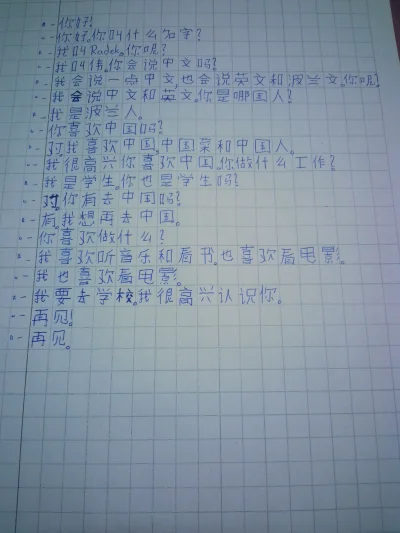 - 你好!
- 你好。你叫什么名字?
- 我叫Radek。你呢?
- 我叫伟。你会说中文吗?
- 我会说一点中文,也会说英文和波兰文。你呢?
- 我会说中文和英文。你是哪国人?
- 我是波兰人。
- 你喜欢中国吗?
- 对我喜欢中国,中国菜和中国人。
- 我很高兴你喜欢中国。你做什么工作?
- 我是学生。你也是学生吗?
- 对。你有去中国吗?
- 有。我想再去中国。
- 你喜欢做什么?
- 我喜欢听音乐和看书。也喜欢看电影。
- 我也喜欢看电影。
- 我要去学校。我很高兴认识你。
- 再见!
- 再见。